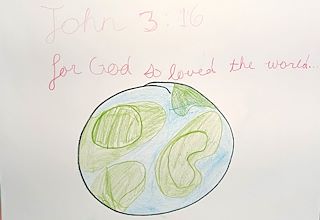 John 3:16
for God so loved the world...